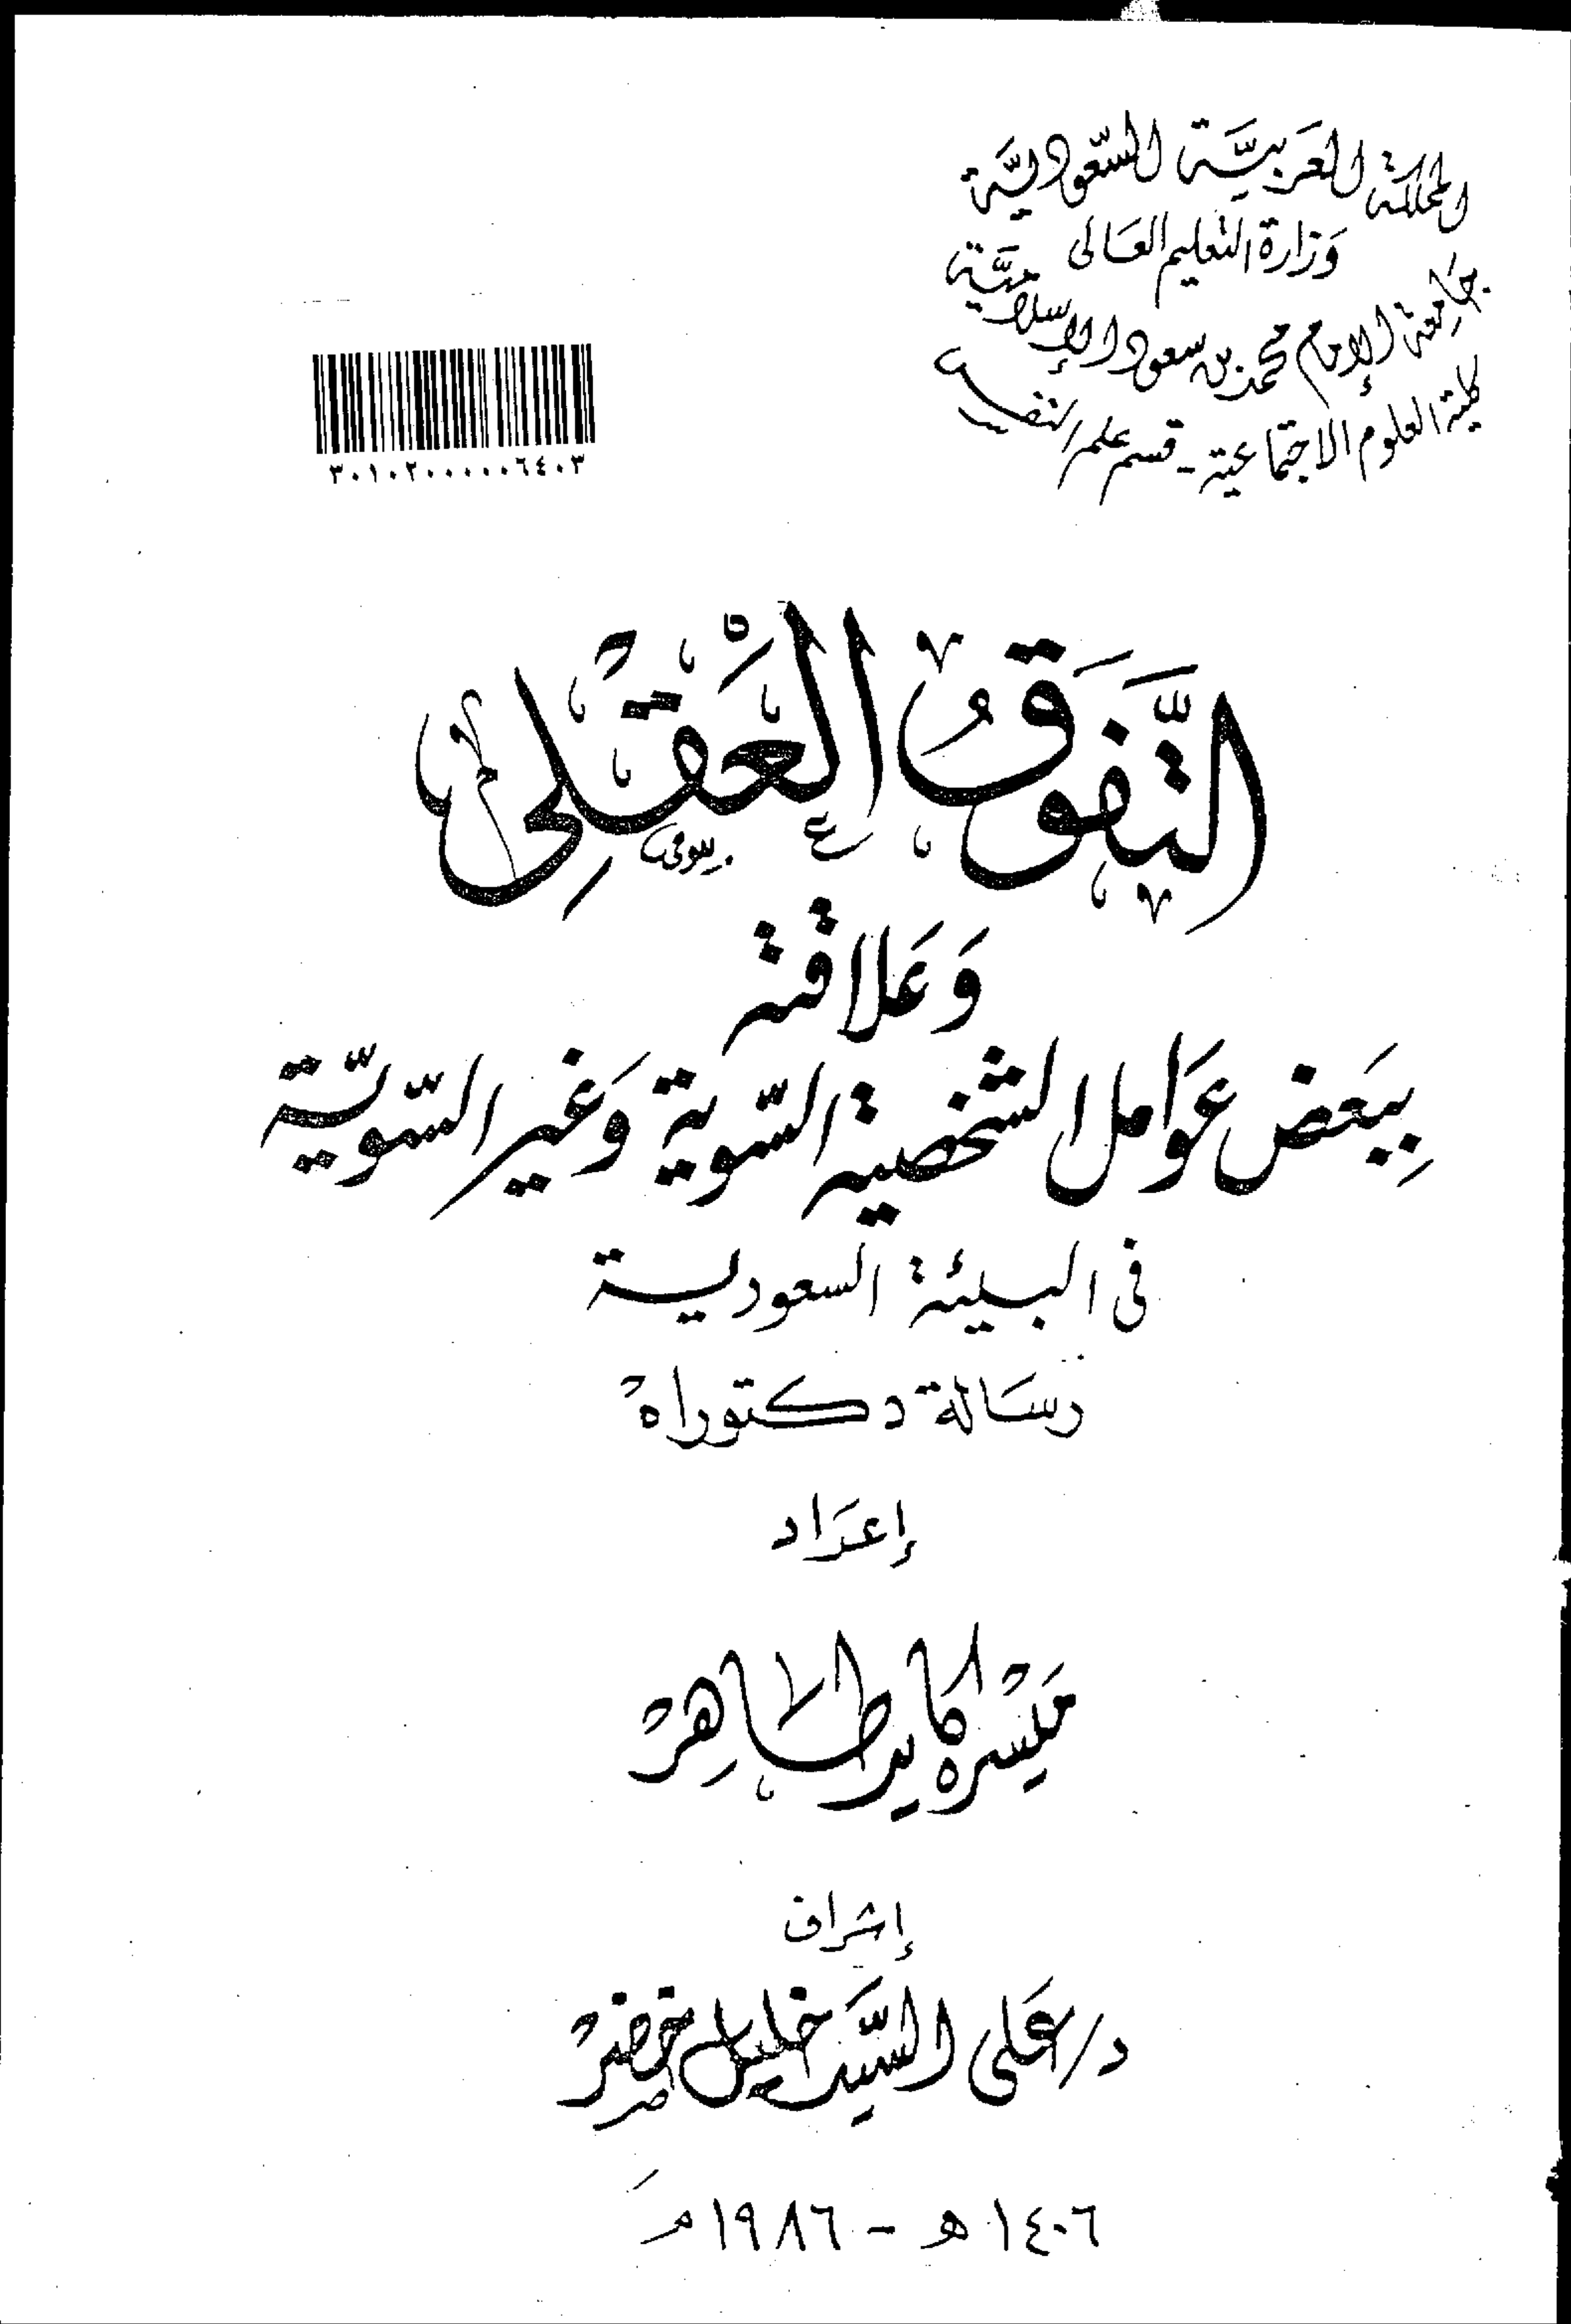 المملكة العَربيَّة السّعُوديَّة
وَزارة التعليم العَالى
جَامِعة الإمام محمد بن سعود الإسلاميَّة
كلية العلوم الاجتماعية - قسم علم النفس
٣٠١٠٢٠٠٠٠٠٦٤٠٣
التَّفَوَقُ العَقْلِى
وَعَلاقته
بِبَعَض عوَامل الشخصية السّوية وَغير السّويّة
فى البيئة السعودية
رسَالة دكتوراه
إعدَاد
مَيْسره كايد طاهِرْ
إشراف
د/ عَلى السَّيّد خليل خضرْ
١٤٠٦ هـ - ١٩٨٦ مَ